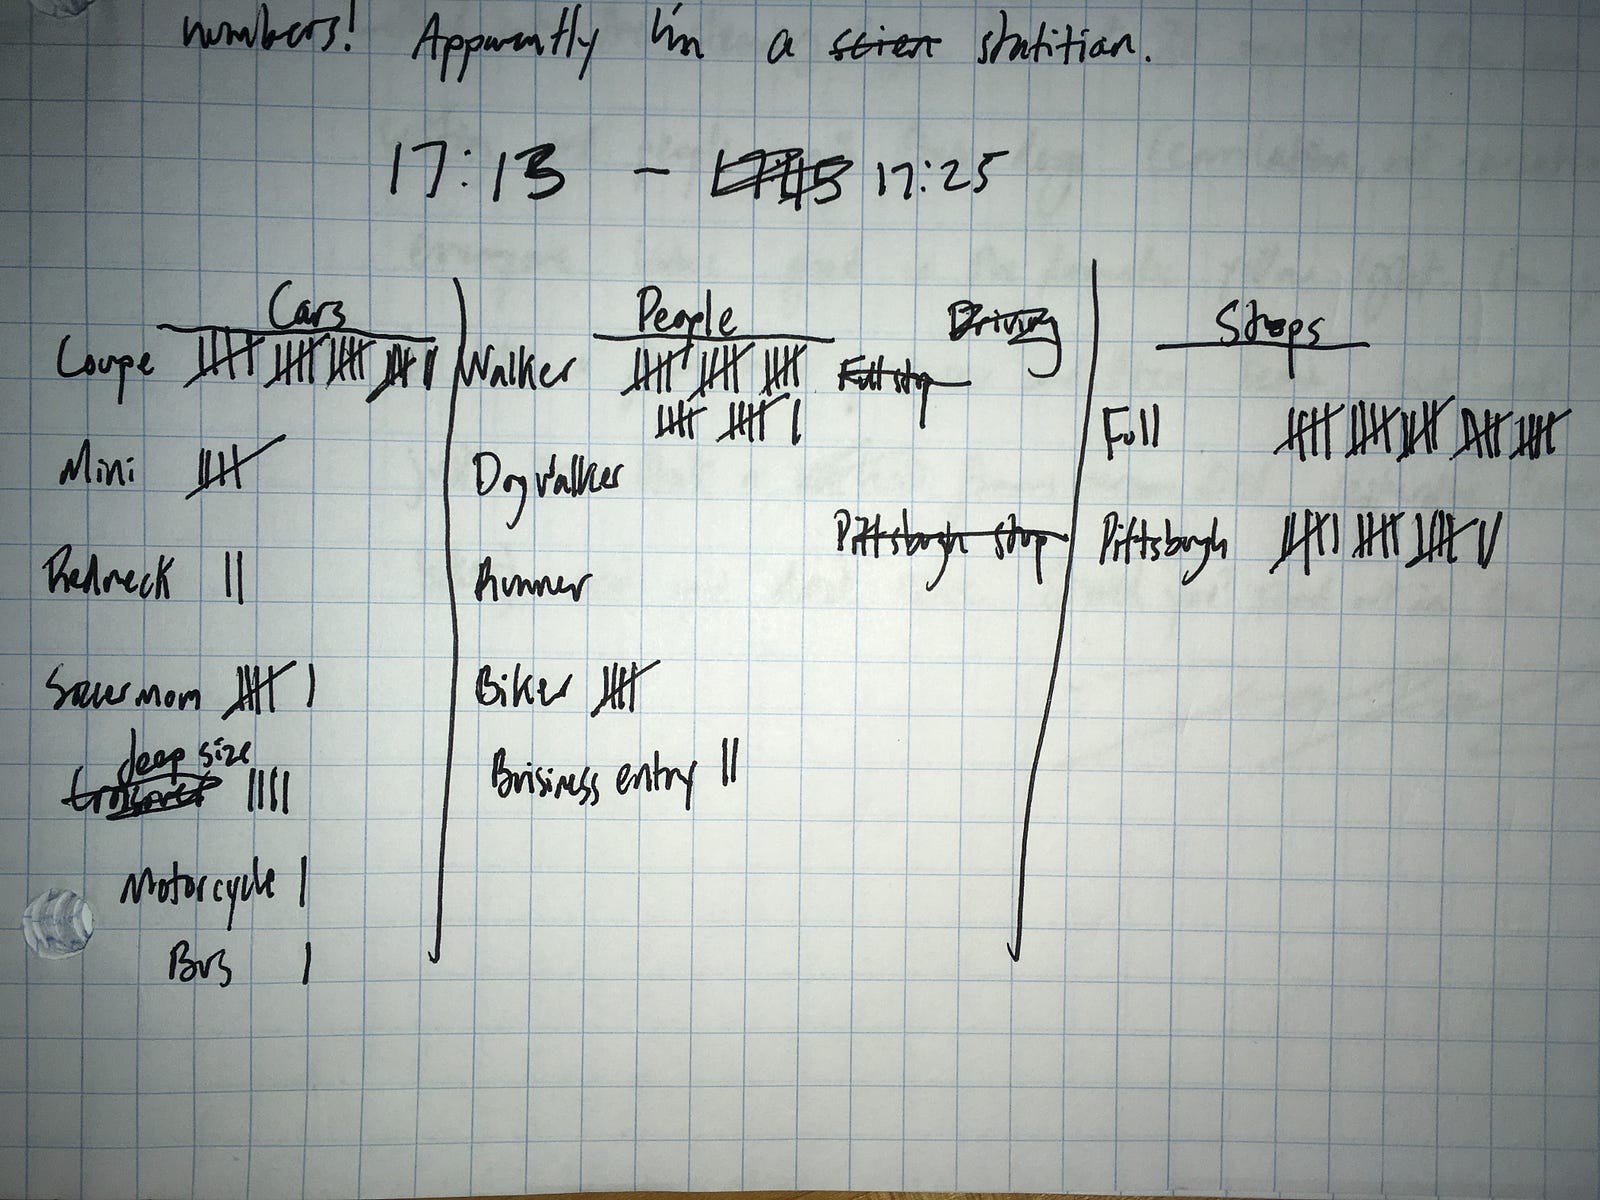 numbers! Apparently I'm a scien statitian.
17:13 - 17:45 17:25
Cars
Coupe
Mini
Redneck
Soccer mom
Jeep size
Motorcycle
Bus
People
Walker
Dog Walker
Runner
Biker
Buisiness entry
Driving
Full stop
Pittsburgh stop
Stops
Full
Pittsburgh